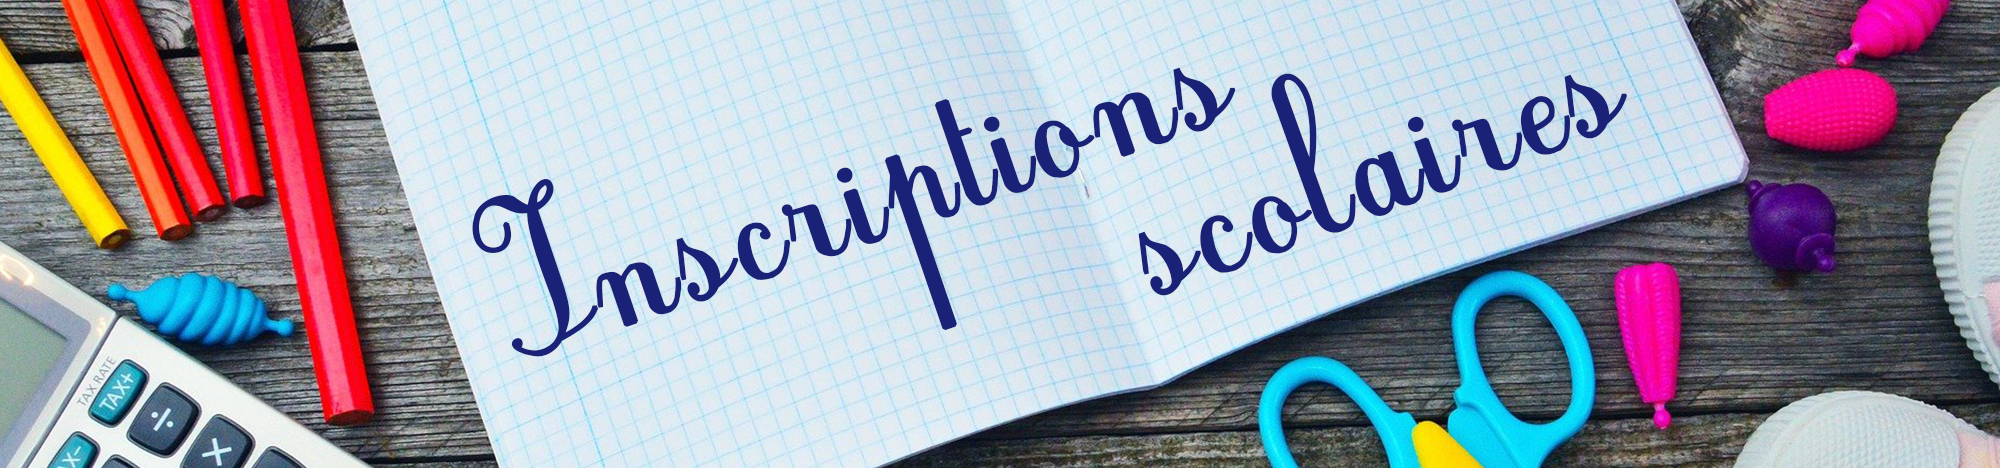 Inscriptions
scolaires
TAX RATE
TAX+
÷
TAX-
×